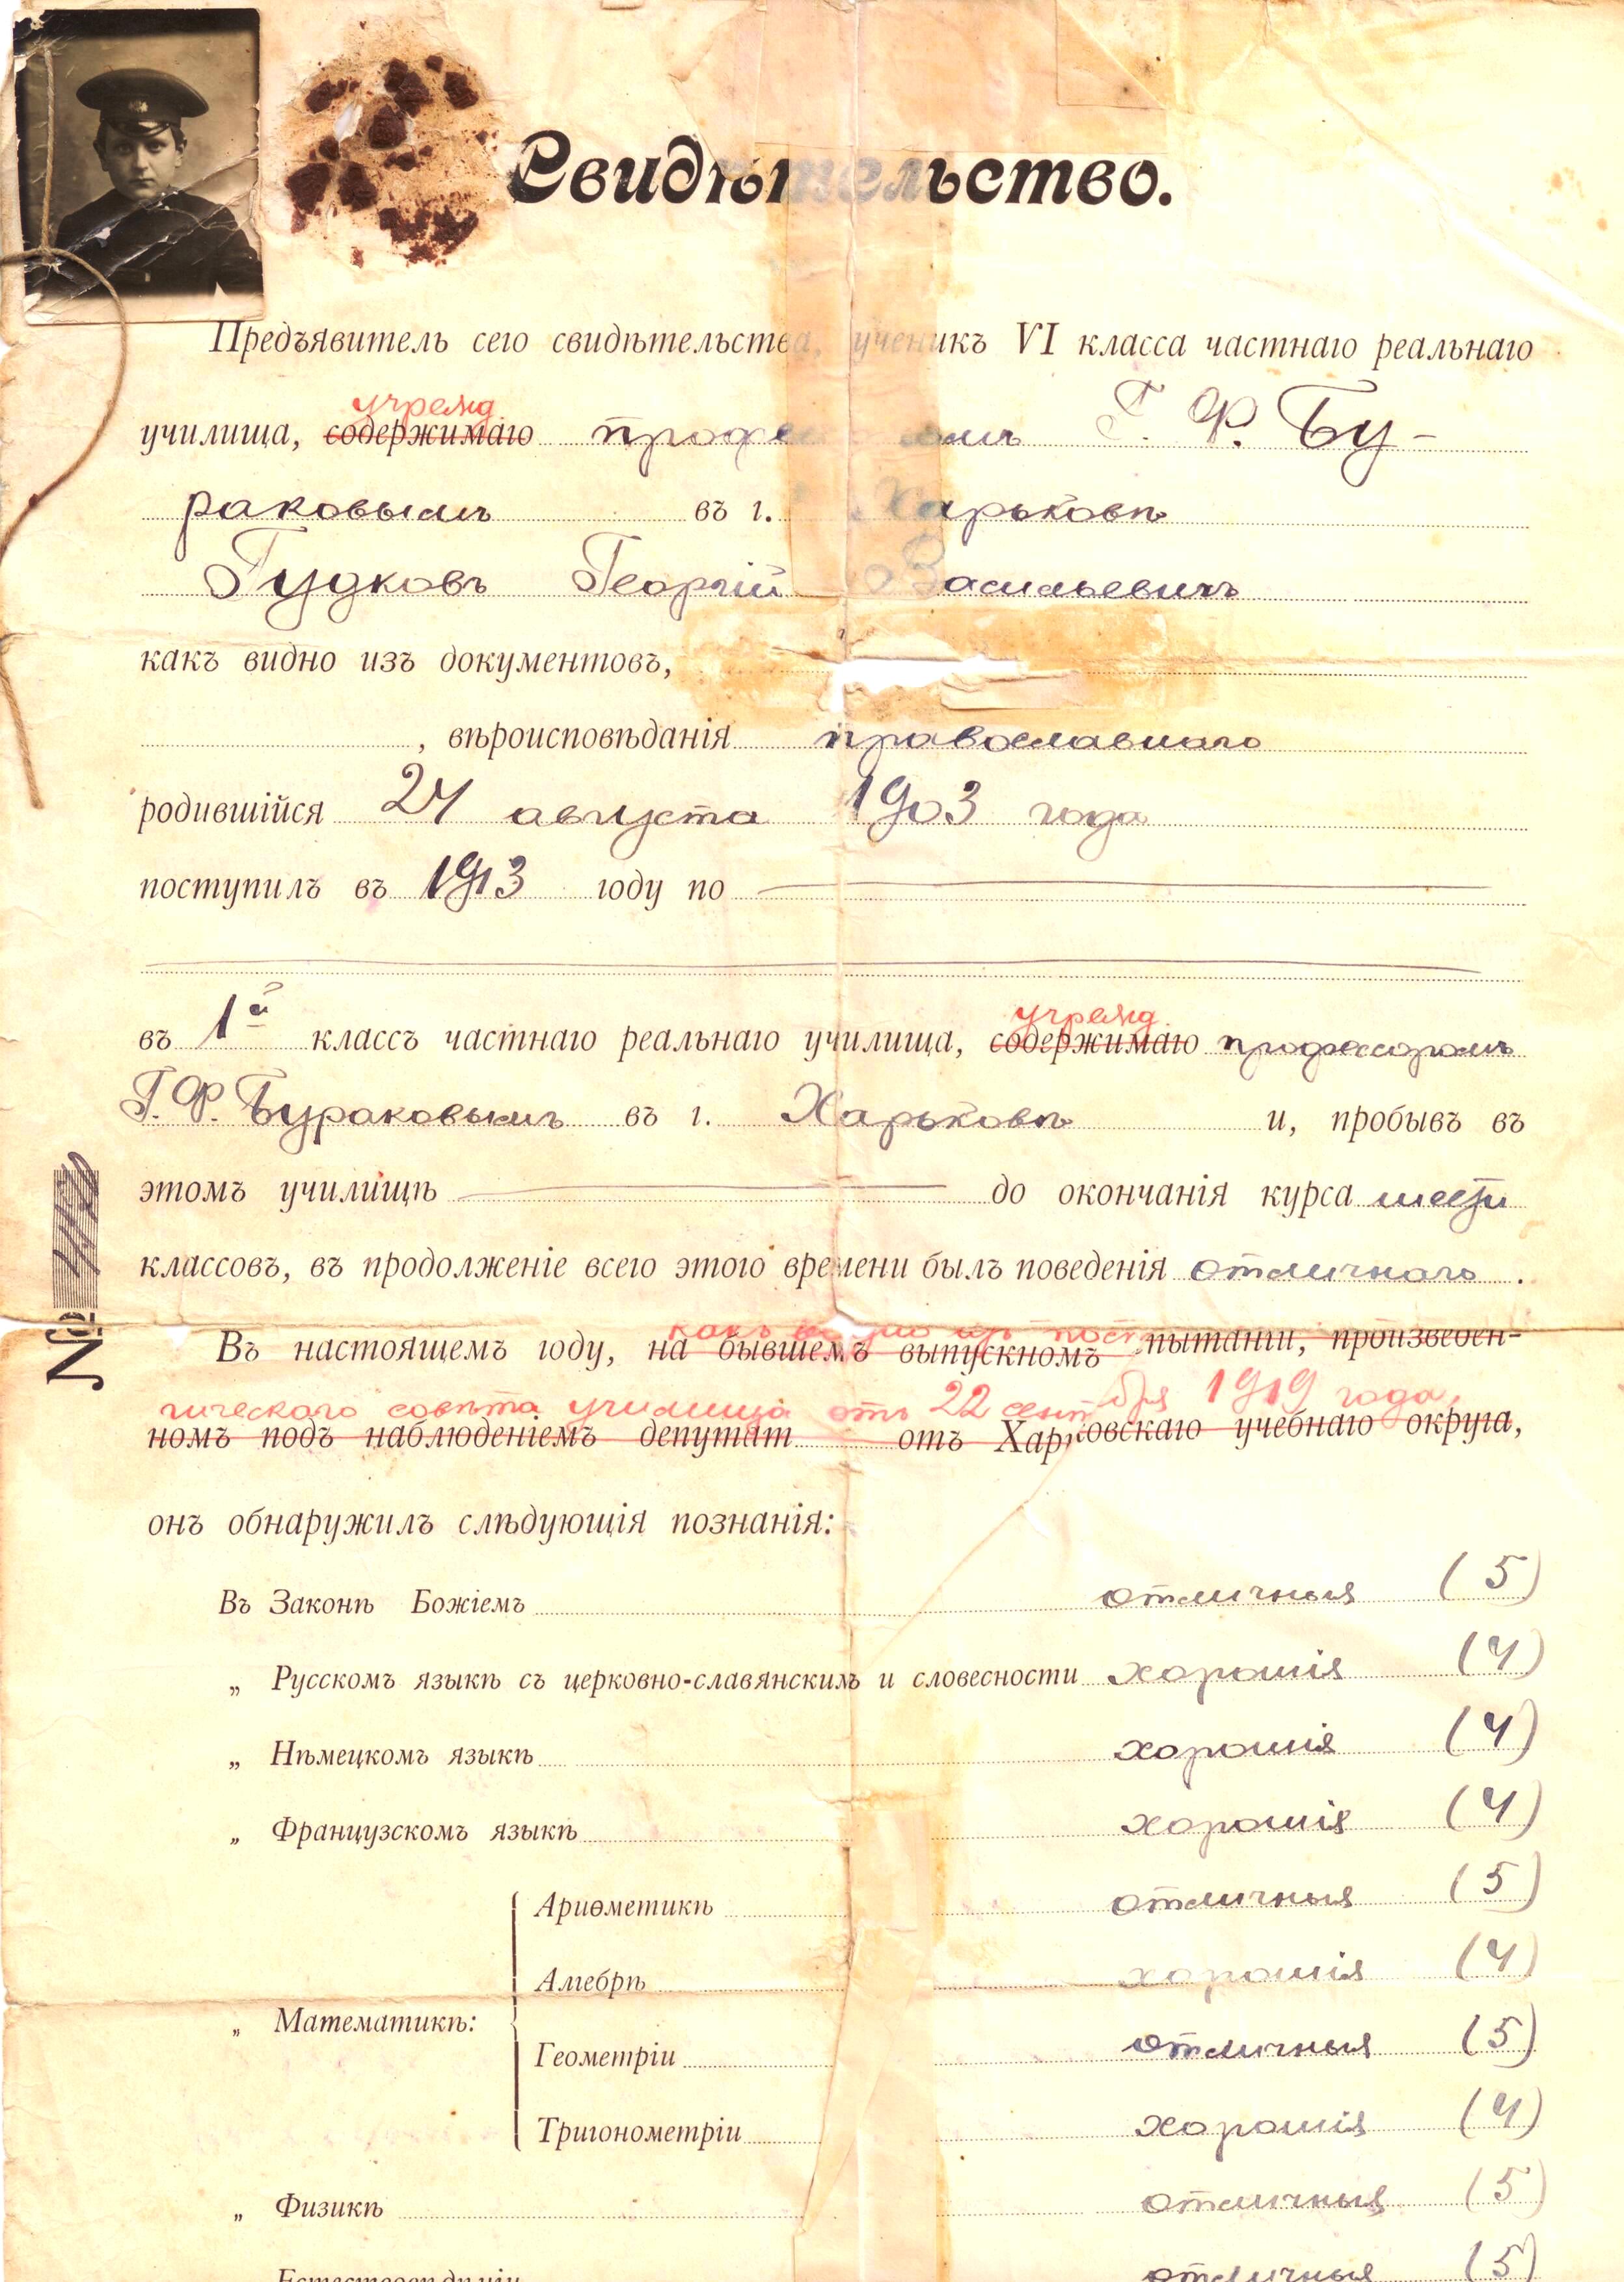 Свидѣтельство.
Предъявитель сего свидѣтельства, ученикъ VI класса частнаго реальнаго
учрежд.
училища, содержимаго Г. Ф. Бу-
раковымъ въ г. Харьковѣ
Гудковъ Георгій Васильевичъ
какъ видно изъ документовъ,
, вѣроисповѣданія православнаго
родившійся 24 августа 1903 года
поступилъ въ 1913 году по
учрежд.
въ 1й классъ частнаго реальнаго училища, содержимаго профессоромъ
Г. Ф. Бураковымъ въ г. Харьковѣ и, пробывъ въ
этомъ училищѣ до окончанія курса шести
классовъ, въ продолженіе всего этого времени былъ поведенія отличнаго .
какъ изъ
Въ настоящемъ году, на бывшемъ выпускномъ пытаніи, произведен-
гическаго совѣта училища отъ 22 сентября 1919 года,
номъ подъ наблюденіемъ депутат отъ Харьковскаго учебнаго округа,
№
онъ обнаружилъ слѣдующія познанія:
Въ Законѣ Божіемъ отличныя (5)
„ Русскомъ языкѣ съ церковно-славянскимъ и словесности хорошія (4)
„ Нѣмецкомъ языкѣ хорошія (4)
„ Французскомъ языкѣ хорошія (4)
Ариѳметикѣ отличныя (5)
Алгебрѣ хорошія (4)
„ Математикѣ:
Геометріи отличныя (5)
Тригонометріи хорошія (4)
„ Физикѣ отличныя (5)
отличныя (5)